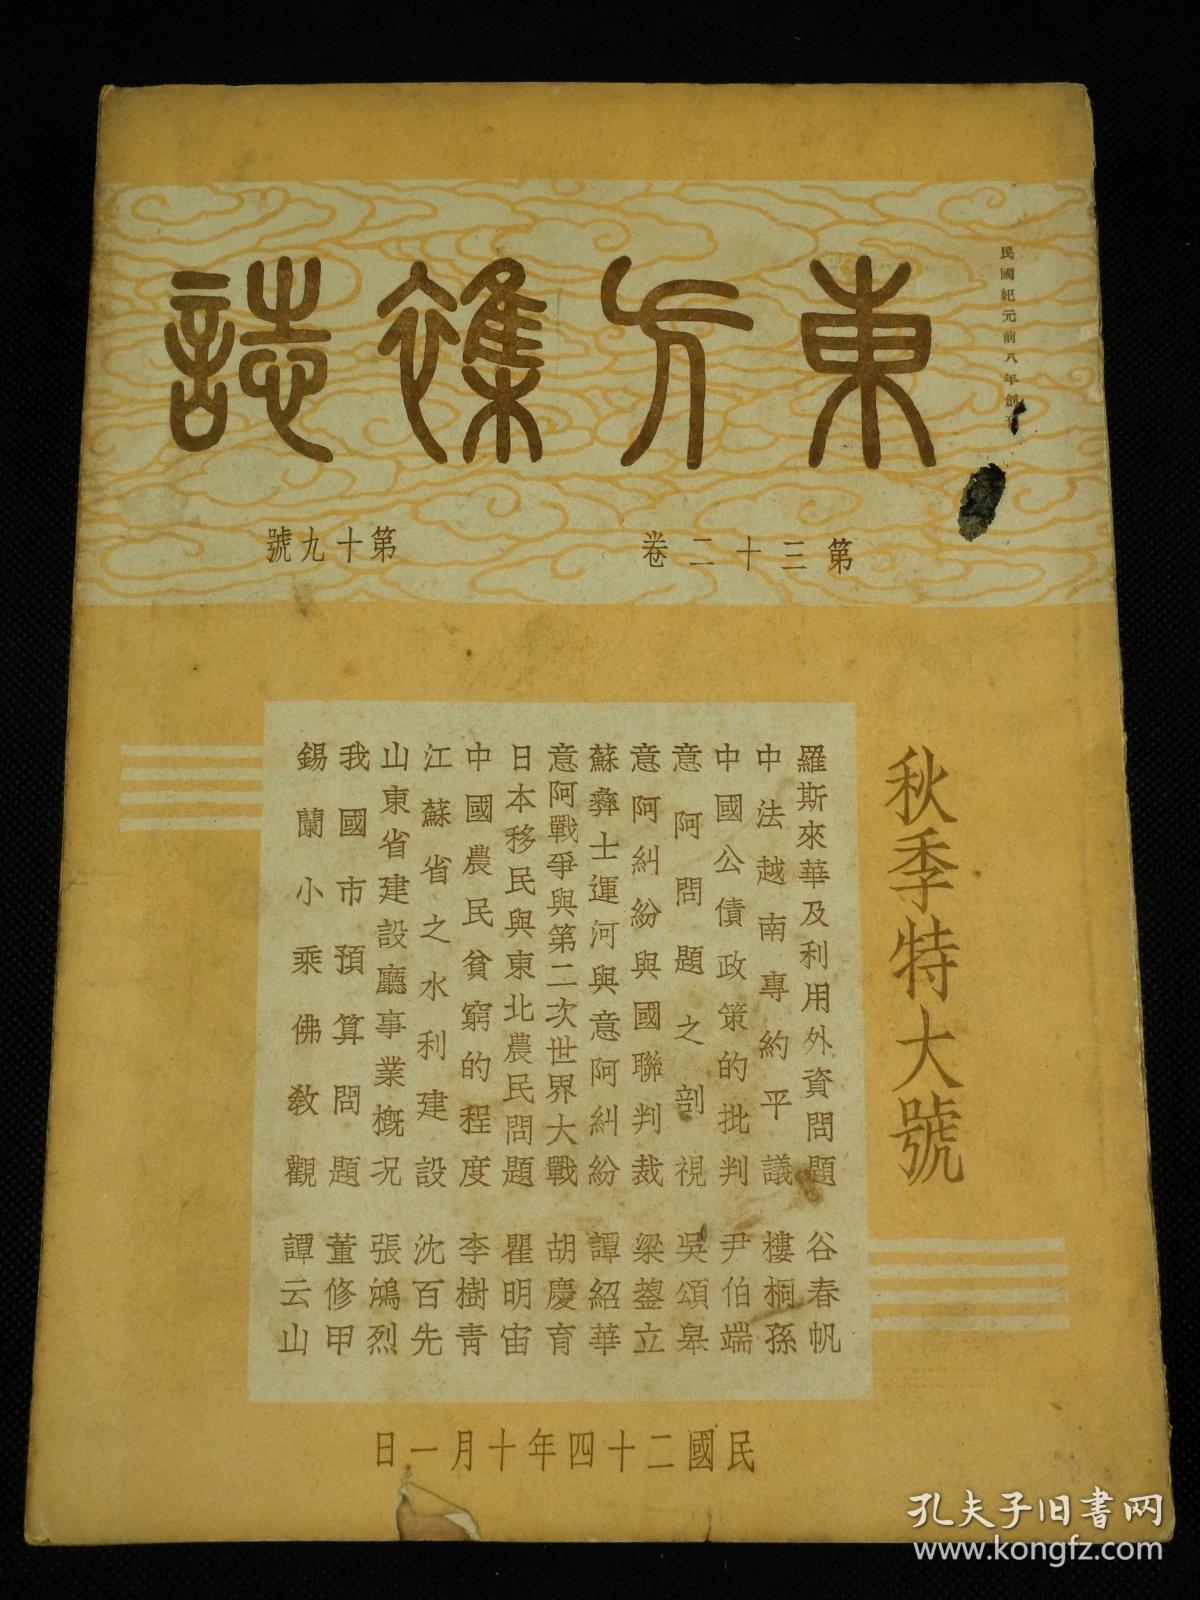 民國紀元前八年創刊
東方雜誌
第三十二卷
第十九號
秋季特大號
羅斯來華及利用外資問題 谷春帆
中法越南專約平議 樓桐孫
中國公債政策的批判 尹伯端
意阿問題之剖視 吳頌皋
意阿糾紛與國聯判裁 梁鋆立
蘇彝士運河與意阿糾紛 譚紹華
意阿戰爭與第二次世界大戰 胡慶育
日本移民與東北農民問題 瞿明宙
中國農民貧窮的程度 李樹青
江蘇省之水利建設 沈百先
山東省建設廳事業概况 張鴻烈
我國市預算問題 董修甲
錫蘭小乘佛教觀 譚云山
民國二十四年十月一日
孔夫子旧書网
www.kongfz.com